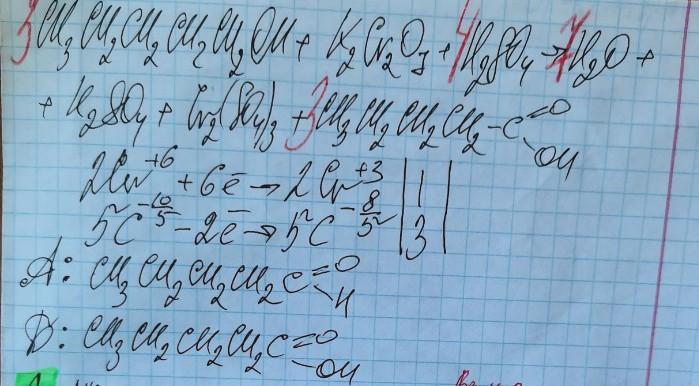 3CH3CH2CH2CH2CH2OH + K2Cr2O7 + 4H2SO4 → 7H2O +
+ K2SO4 + Cr2(SO4)3 + 3CH3CH2CH2CH2-C=O
OH
2Cr+6 + 6e̅ → 2Cr+3 | 1
5C-10/5 - 2e̅ → 5C-8/5 | 3
A: CH3CH2CH2CH2C=O
H
D: CH3CH2CH2CH2C=O
OH